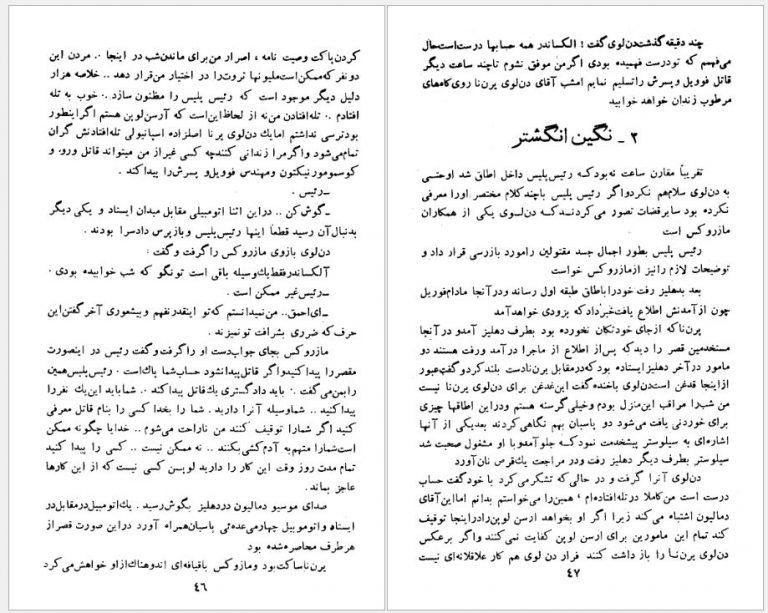 کردن پاکت وصیت نامه ، اصرار من برای ماندن شب در اینجا ۰. مردن این
دو نفر که ممکن است ملیونها ثروت را در اختیار من قرار دهد .. خلاصه هزار
دلیل دیگر موجود است که رئیس پلیس را مظنون سازد .۰ خوب به تله
افتادم .۰ تله افتادن من نه از لحاظ این است که آرسن لوپن هستم اگر اینطور
بود ترسی نداشتم اما یك دن لوی پرنا اصلزاده اسپانیولی تله افتادنش گران
تمام می‌شود واگر مرا زندانی کنند چه کسی غیر از من میتواند قاتل ورو، و
کوسمومورنیکتون ومهندس فوویل و پسرش را پیدا کند .
ـ رئیس .
ـ گوش کن .. در این اثنا اتومبیلی مقابل میدان ایستاد و یکی دیگر
بدنبال آن رسید قطعاً اینها رئیس پلیس و بازپرس دادسرا بودند .
دن لوی بازوی مازروکس را گرفت و گفت :
آلکساندر فقط یك وسیله باقی است تو نگو که شب خوابیده بودی .
ـ رئیس غیر ممکن است .
ـ ای احمق .. من نمیدانستم که تو اینقدر نفهم و بیشعوری آخر گفتن این
حرف که ضرری بشرافت تو نمیزند .
مازروکس بجای جواب دست او را گرفت و گفت رئیس در اینصورت
مقصر را پیدا کنید و اگر قاتل پیدا نشود حساب شما پاك است . رئیس پلیس همین
را بمن می‌گفت .۰ باید دادگستری یك قاتل پیدا کند .۰ شما باید این یك نفر را
پیدا کنید .. شما وسیله آنرا دارید . شما را بخدا کسی را بنام قاتل معرفی
کنید اگر شما را توقیف کنند من ناراحت می‌شوم .. خدایا چگونه ممکن
است شما را متهم به آدم کشی بکنند .. نه ممکن نیست .. کسی را پیدا کنید
تمام مدت روز وقت این کار را دارید لوپن کسی نیست که از این کارها
عاجز بماند .
صدای موسیو دمالیون در دهلیز بگوش رسید . یك اتومبیل در مقابل در
ایستاد و اتوموبیل چهارمی عده‌ئی پاسبان همراه آورد در این صورت قصر از
هر طرف محاصره شده بود
پرنا ساکت بود و مازروکس باقیافه‌ای اندوهناك از او خواهش می‌کرد
٤٦
چند دقیقه گذشت دن لوی گفت : الکساندر همه حسابها درست است حال
می‌فهمم که تو درست فهمیده بودی اگر من موفق نشوم تا چند ساعت دیگر
قاتل فوویل و پسرش را تسلیم نمایم امشب آقای دن لوی پرنا روی کاه‌های
مرطوب زندان خواهد خوابید
۲ ـ نگین انگشتر
تقریباً مقارن ساعت نه بود که رئیس پلیس داخل اطاق شد او حتی
به دن لوی سلام هم نکرد و اگر رئیس پلیس با چند کلام مختصر او را معرفی
نکرده بود سایر قضات تصور می‌کردند که دن لوی یکی از همکاران
مازروکس است
رئیس پلیس بطور اجمال جسد مقتولین را مورد بازرسی قرار داد و
توضیحات لازم را نیز از مازروکس خواست
بعد بدهلیز رفت خود را باطاق طبقه اول رساند و در آنجا مادام فوریل
چون از آمدنش اطلاع یافت خبر داد که بزودی خواهد آمد
پرنا که از جای خود تکان نخورده بود بطرف دهلیز آمد و در آنجا
مستخدمین قصر را دید که پس از اطلاع از ماجرا در آمد و رفت هستند دو
مامور در آخر دهلیز ایستاده بود که در مقابل پرنا دست بلند کرد و گفت عبور
از اینجا قدغن است دن لوی با خنده گفت این غدغن برای دن لوی پرنا نیست
من شب را مراقب این منزل بودم و خیلی گرسنه هستم و در این اطاقها چیزی
برای خوردنی یافت می‌شود دو پاسبان بهم نگاهی کردند بعد یکی از آنها
اشاره‌ای به سیلوستر پیشخدمت نمود که جلو آمد و با او مشغول صحبت شد
سیلوستر بطرف دیگر دهلیز رفت و در مراجعت یك قرص نان آورد
دن لوی آنرا گرفت و در حالی که تشکر می‌کرد با خود گفت حساب
درست است من کاملا در تله افتاده‌ام ، همین را می‌خواستم بدانم اما این آقای
دمالیون اشتباه می‌کند زیرا اگر او بخواهد ارسن لوپن را در اینجا توقیف
کند تمام این مامورین برای ارسن لوپن کفایت نمی‌کنند و اگر برعکس
دن لوی پرنا را باز داشت کنند فرار دن لوی هم کار عاقلانه‌ای نیست
٤٧